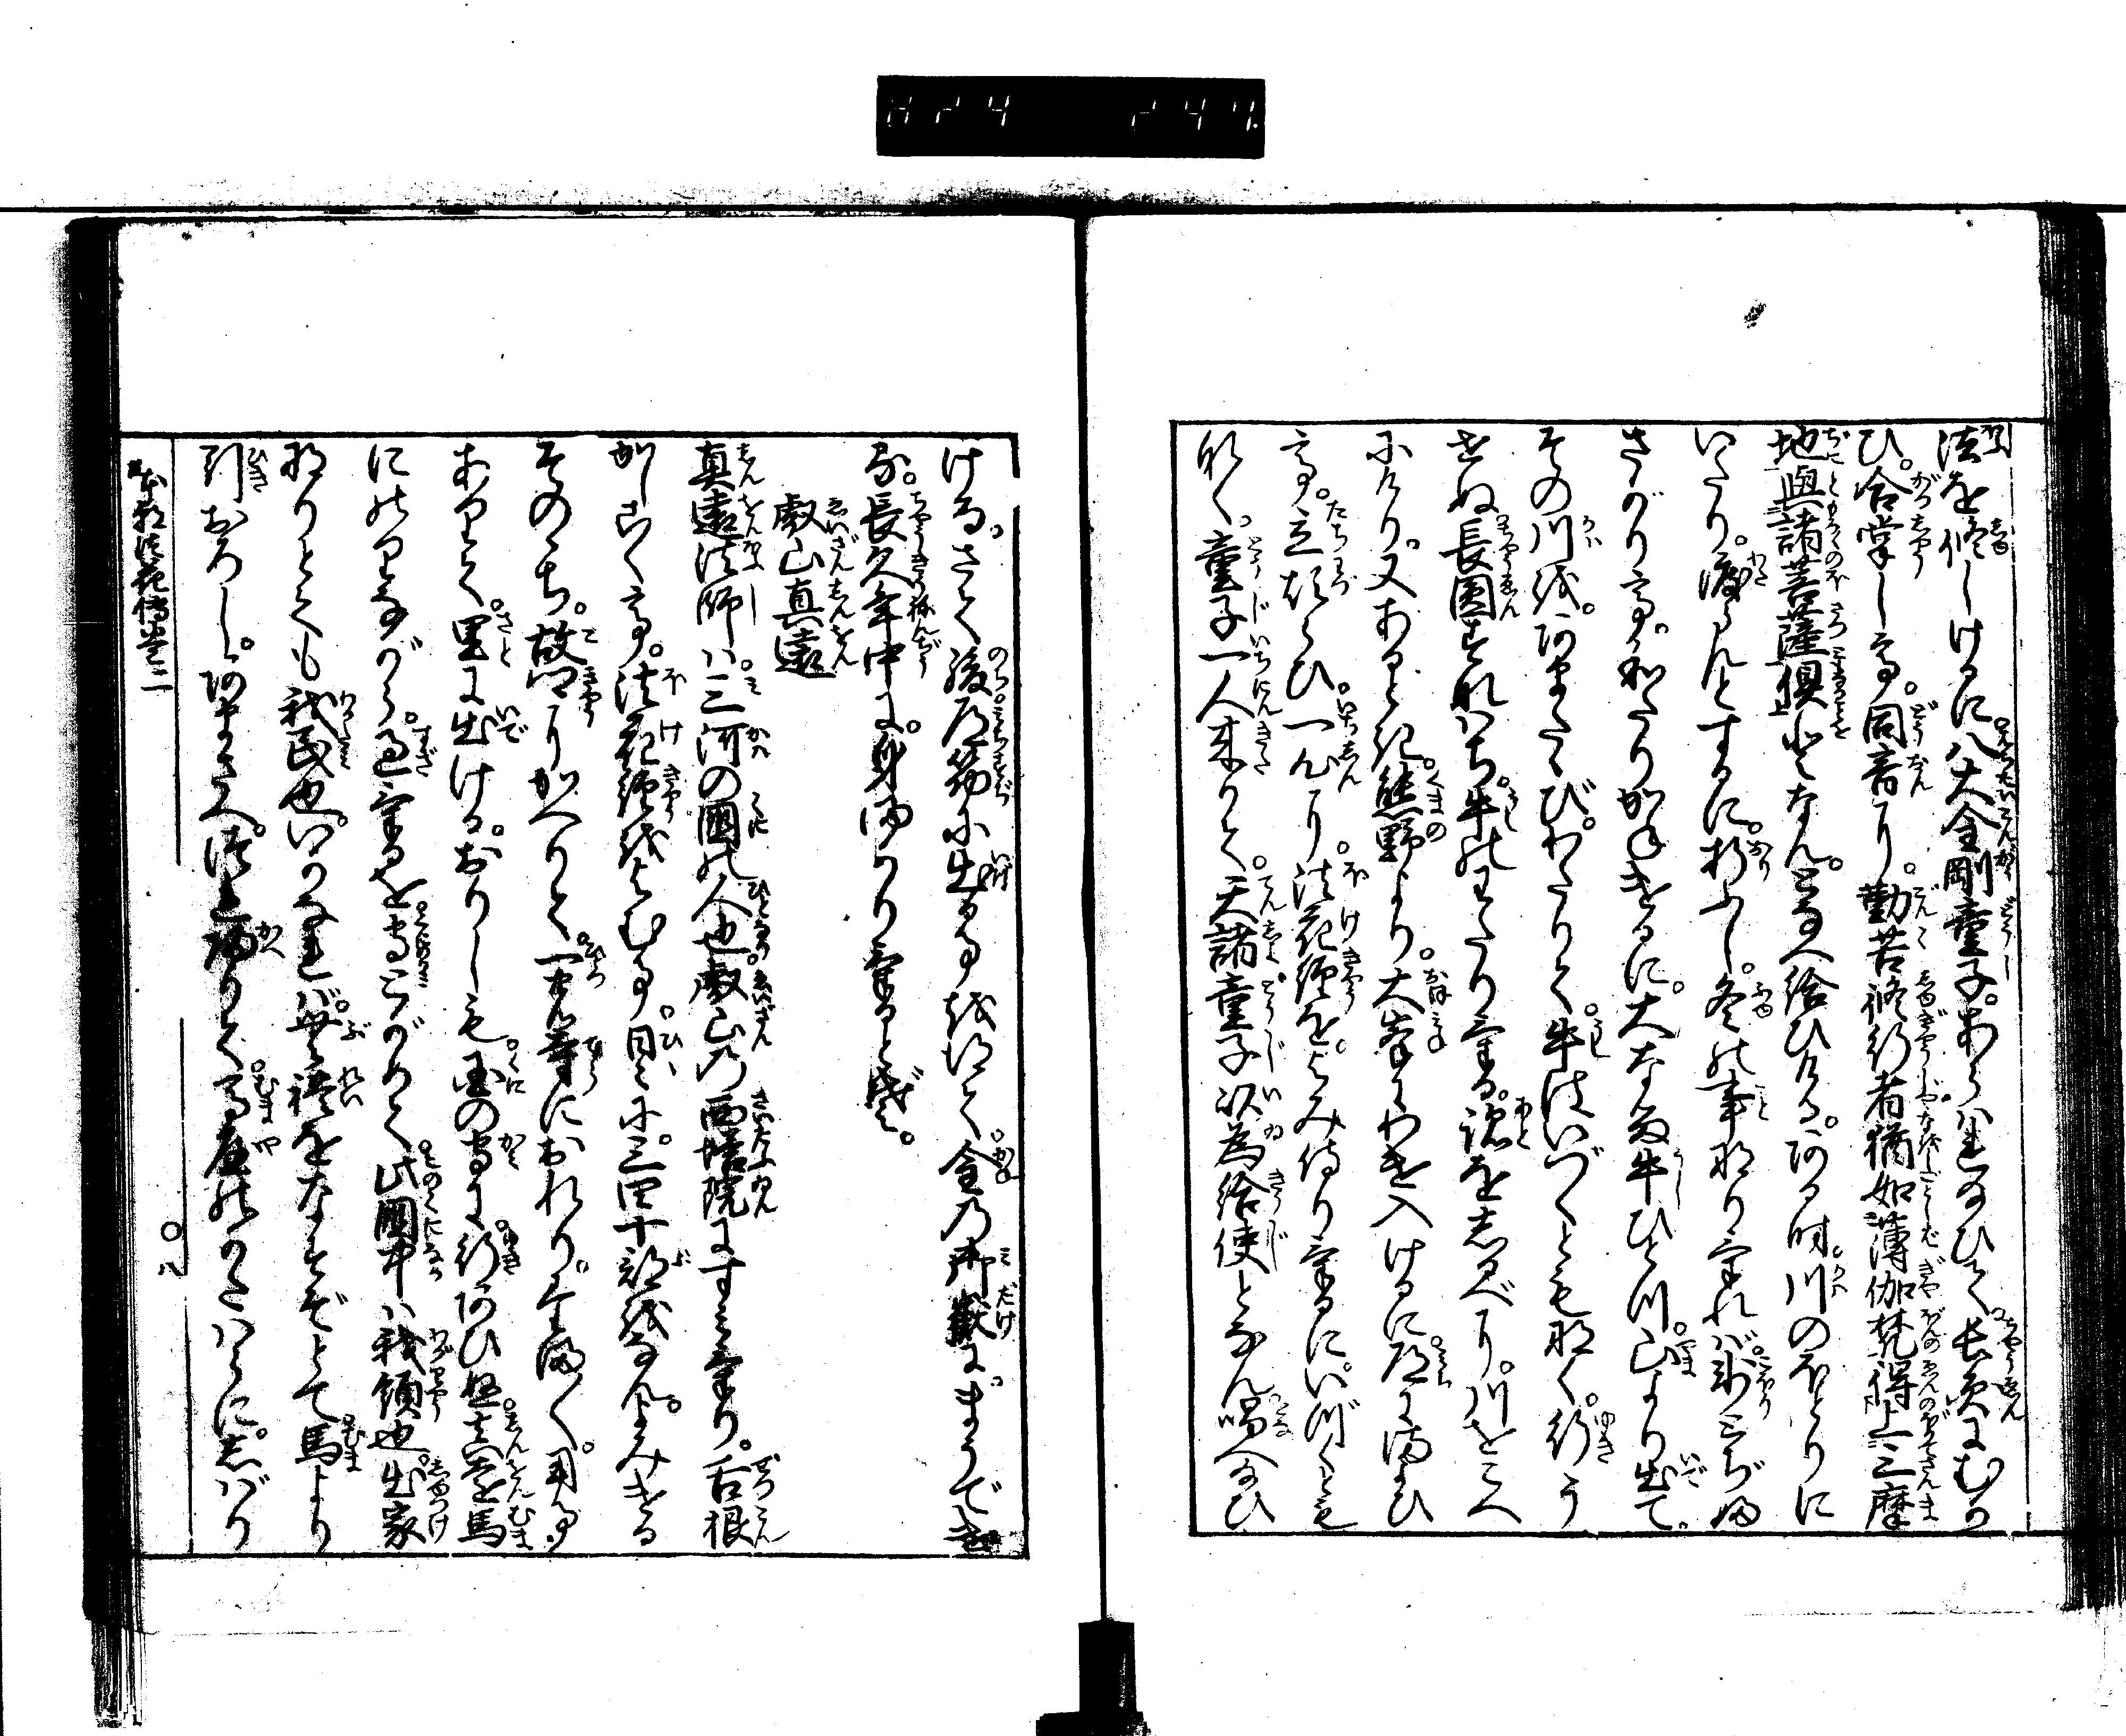 法を修しけるに。八大金剛童子。あらはれ給ひて。長円にむか
ひ。合掌して。同音に。勤苦修行者猶如薄伽梵得上三摩
地與諸菩薩俱となん。となへ給ひける。ある時。川のほとりに
いたり。渡らんとするに。折ふし。冬の事なりければ。氷とぢふ
さがりて。わたりかねけるに。大なる牛ひとつ。山より出て。
その川を。あまたたびわたりて。牛はいづくともなく。行う
せぬ長圓すなはち。牛のわたりける。跡をしるべに。川をこへ
にけり。又あるとき。熊野より。大峯にわけ入けるに。道にまよひ
て。立わづらひ。一心に。法花経を。よみ侍りけるに。いづくとも
なく。童子一人来りて。天諸童子以為給使となん唱へ給ひ
ける。さて後道筋に出る事を得て。金乃御嶽に。まうでけ
る。長久年中に。身まかりけるとぞ。
叡山真遠
真遠法師は。三河の國の人也。叡山の西塔院にすみけり。舌根
かしこくて。法花經をよむ事。日々に。三四十部をなん。よみける
そののち。故郷にかへりて。一寺におれり。
ありて。里に出ける。おりしも。国の守に行あひぬ。真遠馬
にのりながら。過けるを。守とがめて。此國中は我領也。出家
なりとても我民也。いかなれば。無禮をなすぞとて馬より
引おろし。馬屋のかたはらに。しばり
本朝法花傳巻二
〇八